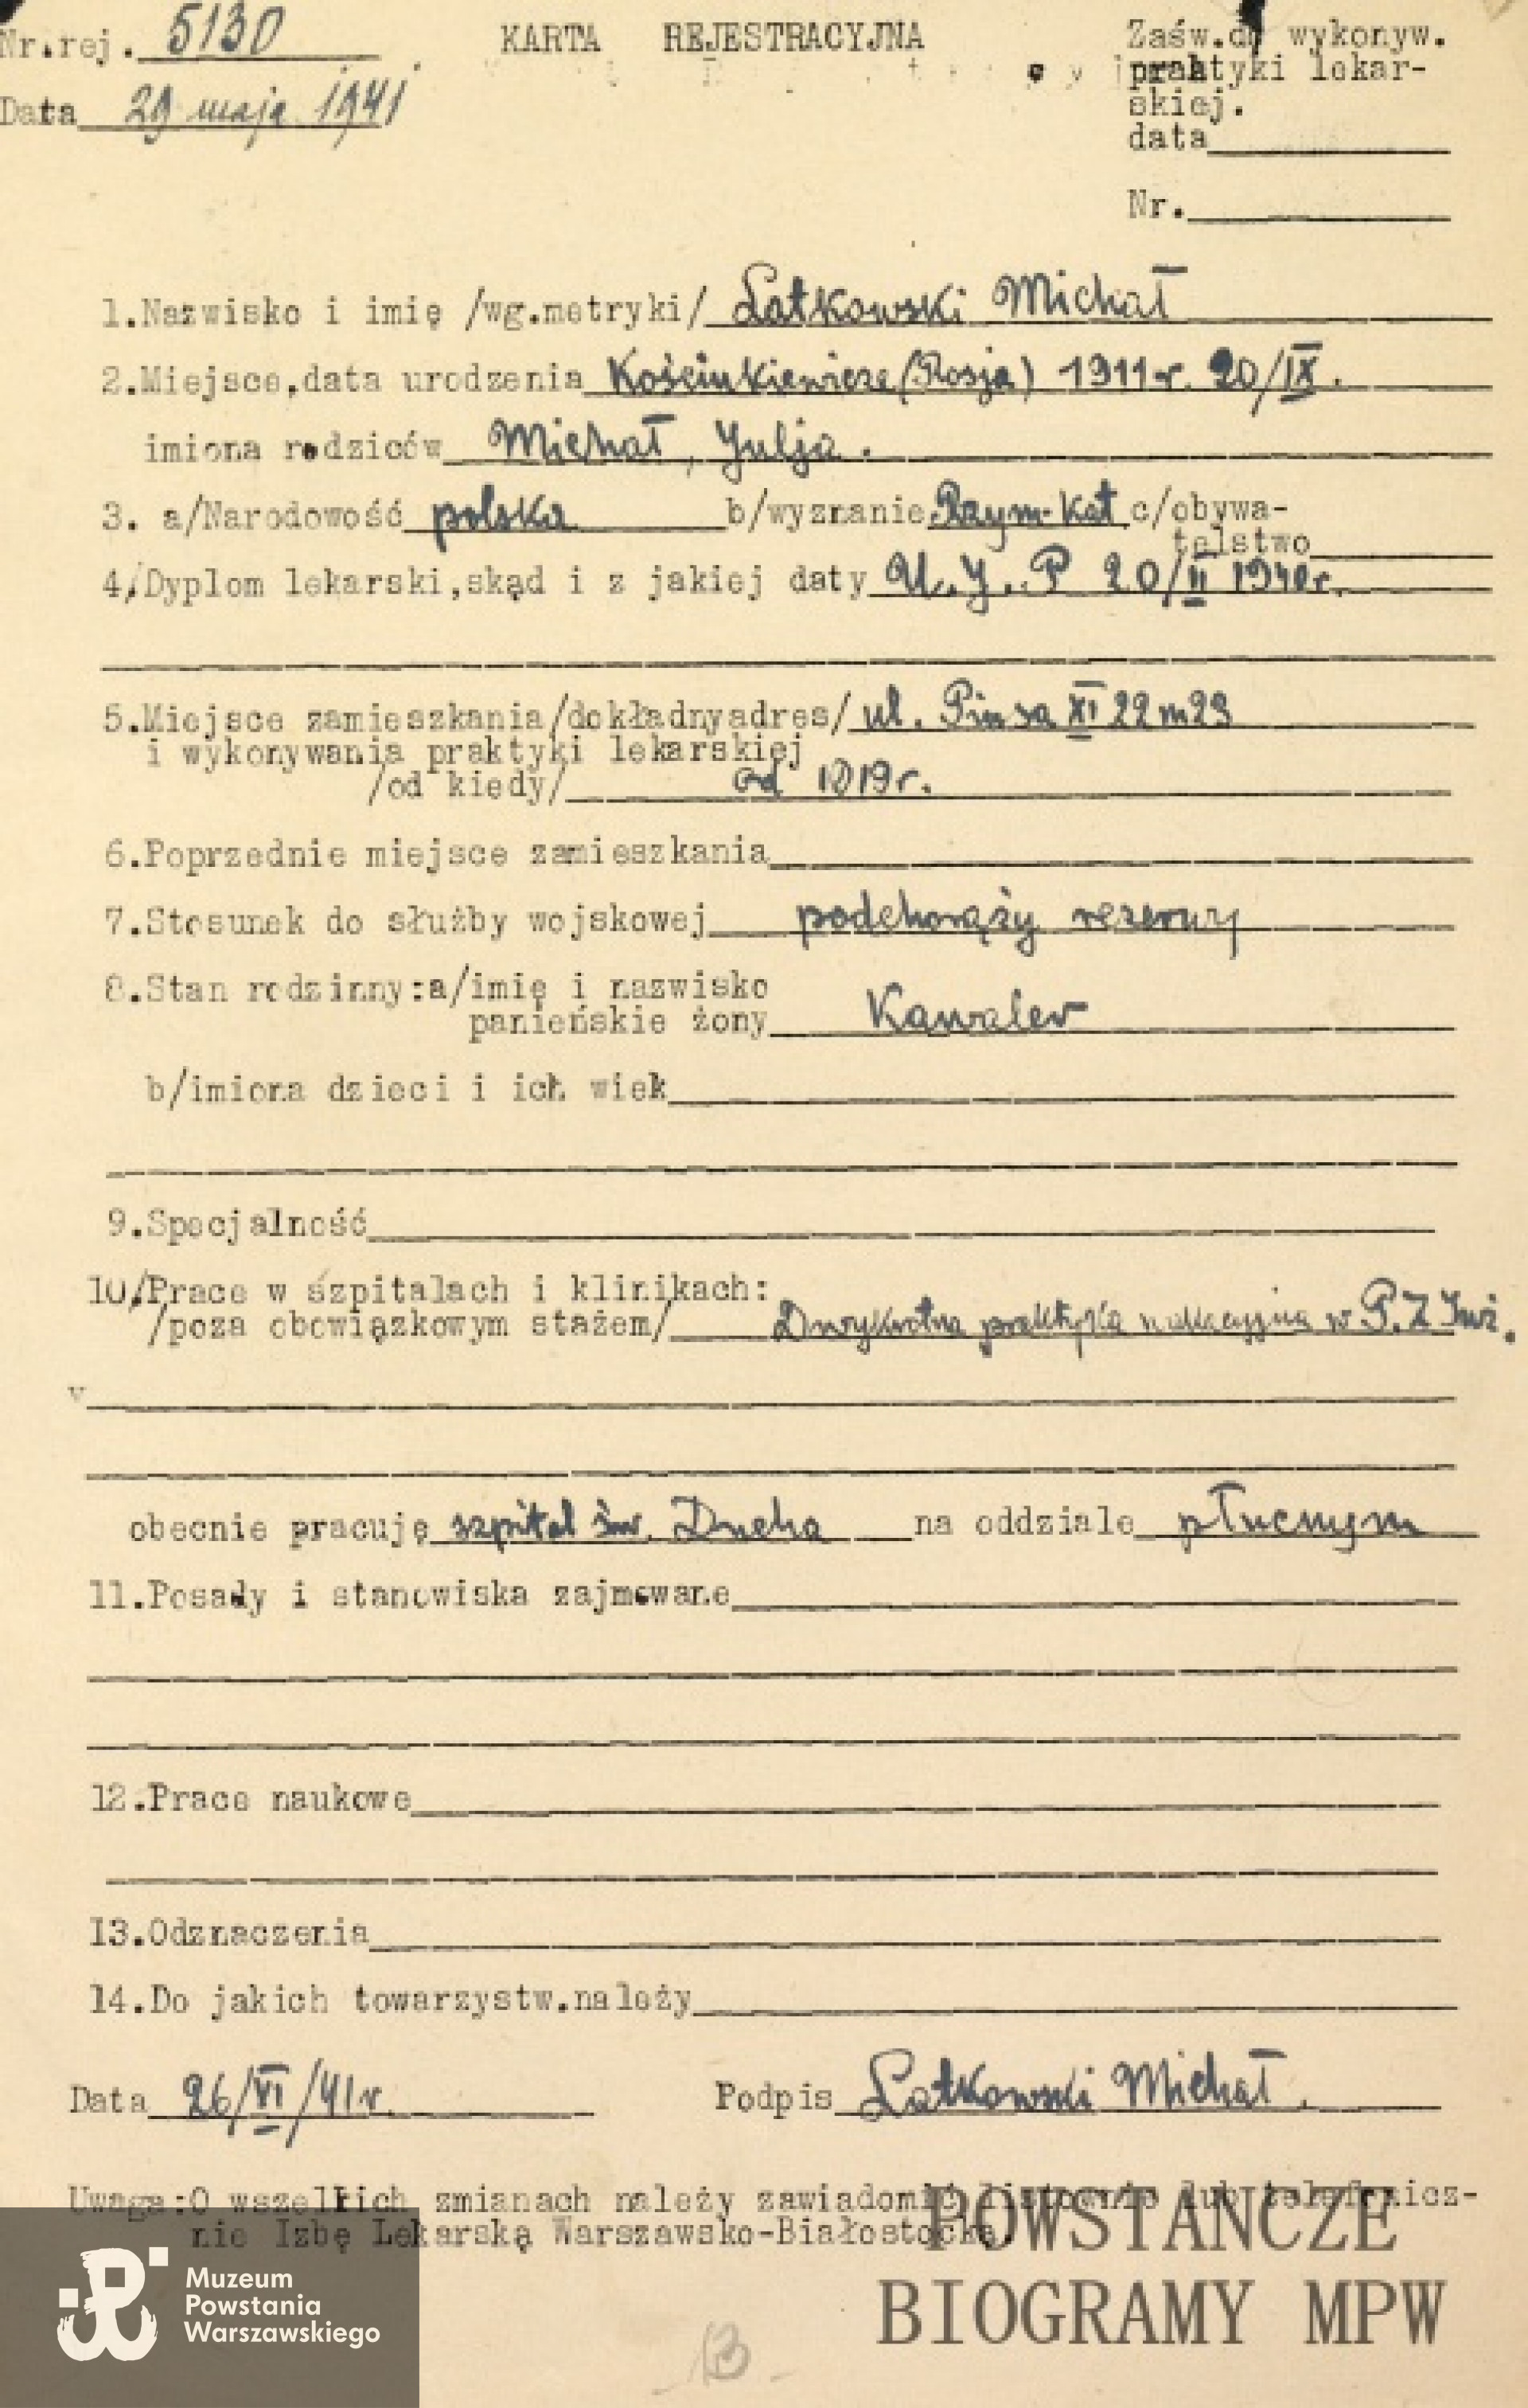 Nr.rej. 5130 KARTA REJESTRACYJNA Zaśw.do wykonyw.
praktyki lekar-
Data 29 maja 1941 skiej.
data
Nr.
1.Nazwisko i imię /wg.metryki/ Latkowski Michał
2.Miejsce,data urodzenia (Rosja) 1911r. 20/IX.
imiona rodziców Michał, Julja.
3. a/Narodowość polska b/wyznanie Rzym-Kat c/obywa-
telstwo
4/Dyplom lekarski,skąd i z jakiej daty U.J.P 20/II 1940r.
5.Miejsce zamieszkania/dokładnyadres/ ul. Piusa XI 22 m 23
i wykonywania praktyki lekarskiej
/od kiedy/ od 1919r.
6.Poprzednie miejsce zamieszkania
7.Stosunek do służby wojskowej podchorąży rezerwy
8.Stan rodzinny:a/imię i nazwisko
panieńskie żony Kawaler
b/imiona dzieci i ich wiek
9.Specjalność
10/Prace w szpitalach i klinikach:
/poza obowiązkowym stażem/ Dwykrotna praktyka wakacyjna w P.Z Inż.
v
obecnie pracuję szpital św. Ducha na oddziale płucnym
11.Posady i stanowiska zajmowane
12.Prace naukowe
13.Odznaczenia
14.Do jakich towarzystw.należy
Data 26/VI/41r. Podpis Latkowski Michał.
Uwaga:O wszelkich zmianach należy zawiadomić listownie lub telefonicz-
nie Izbę Lekarską Warszawsko-Białostocką.
POWSTAŃCZE
BIOGRAMY MPW
Muzeum
Powstania
Warszawskiego
13